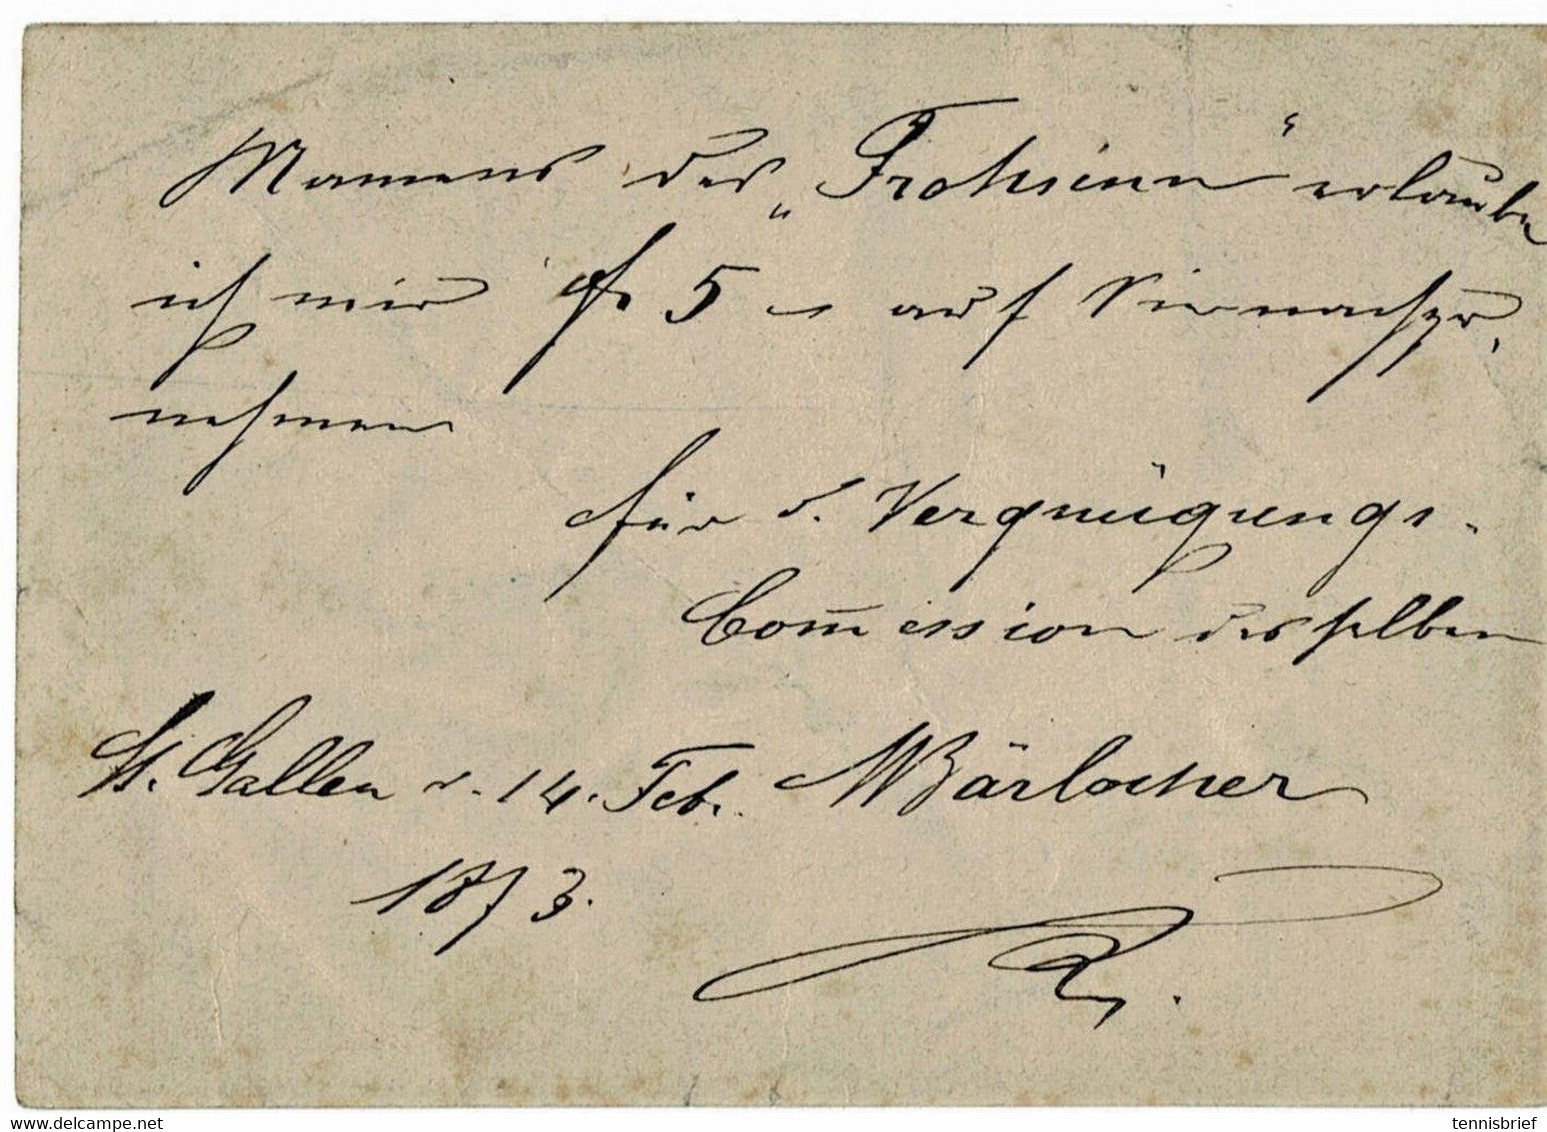 Namens des „Frohsinn“ erlaube
ich mir fr 5 auf Sie nachzu
nehmen
für d. Vergnügungs-
Com̅ission desselben
St. Gallen d. 14. Feb. Bärlocher
1873.
www.delcampe.net
tennisbrief